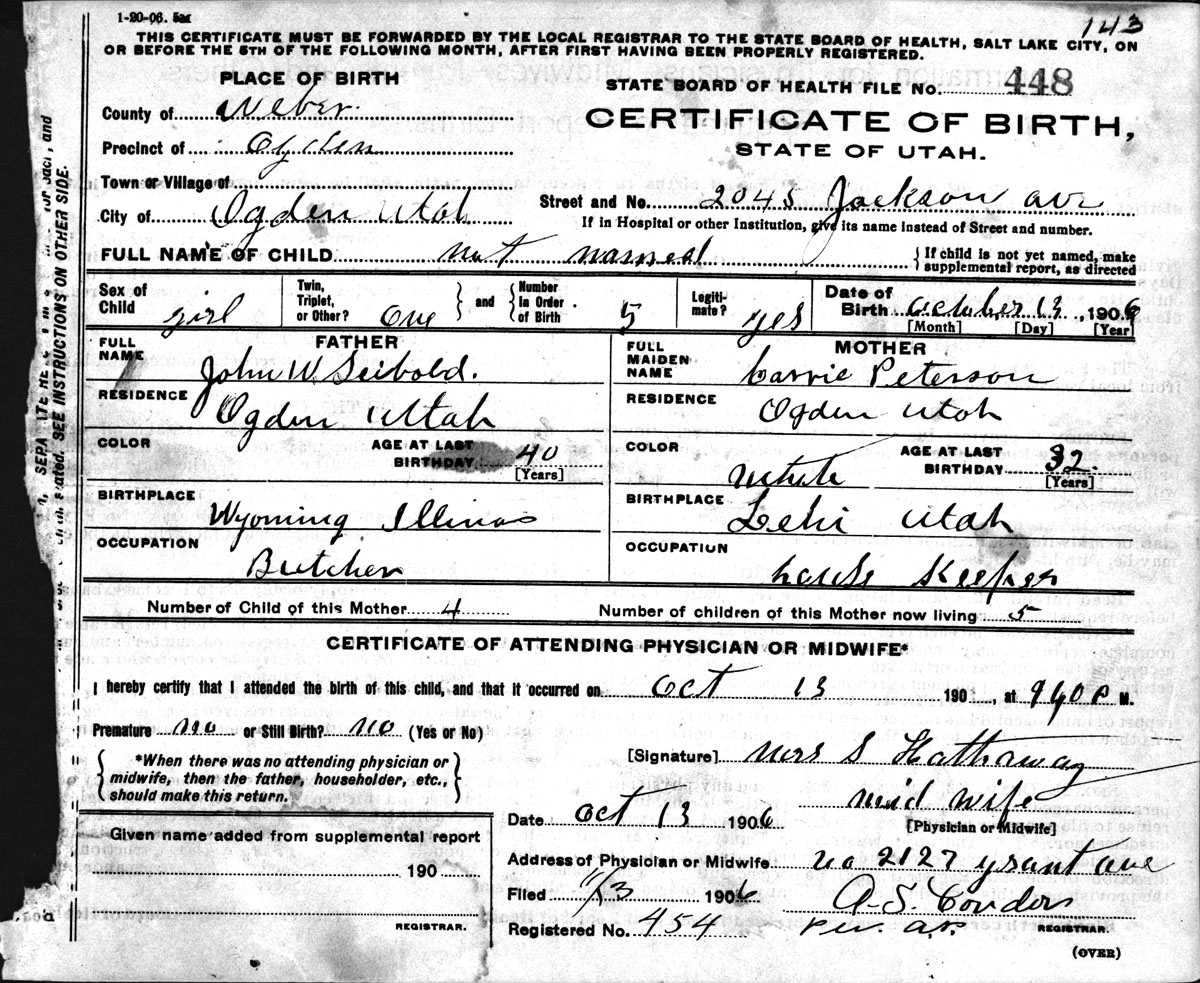 1-20-06. 5M
143
THIS CERTIFICATE MUST BE FORWARDED BY THE LOCAL REGISTRAR TO THE STATE BOARD OF HEALTH, SALT LAKE CITY, ON
OR BEFORE THE 5TH OF THE FOLLOWING MONTH, AFTER FIRST HAVING BEEN PROPERLY REGISTERED.
PLACE OF BIRTH
STATE BOARD OF HEALTH FILE No. 448
County of Weber
CERTIFICATE OF BIRTH,
Precinct of Ogden
STATE OF UTAH.
Town or Village of
Street and No. 2045 Jackson ave
City of Ogden Utah
If in Hospital or other Institution, give its name instead of Street and number.
FULL NAME OF CHILD not named
If child is not yet named, make
supplemental report, as directed
Sex of Child girl
Twin, Triplet, or Other? One
and Number In Order of Birth 5
Legitimate? yes
Date of Birth October 13, 1906
[Month] [Day] [Year]
FATHER
FULL NAME John W. Seibold.
RESIDENCE Ogden Utah
COLOR
AGE AT LAST BIRTHDAY 40
[Years]
BIRTHPLACE Wyoming Illinois
OCCUPATION Butcher
MOTHER
FULL MAIDEN NAME Carrie Peterson
RESIDENCE Ogden Utah
COLOR White
AGE AT LAST BIRTHDAY 32.
[Years]
BIRTHPLACE Lehi Utah
OCCUPATION house Keeper
Number of Child of this Mother 4
Number of children of this Mother now living 5
CERTIFICATE OF ATTENDING PHYSICIAN OR MIDWIFE*
I hereby certify that I attended the birth of this child, and that it occurred on Oct 13 190 , at 9 40 P M.
Premature no or Still Birth? no (Yes or No)
*When there was no attending physician or
midwife, then the father, householder, etc.,
should make this return.
[Signature] Mrs S Hathaway
mid wife
[Physician or Midwife]
Date Oct 13 1906
Address of Physician or Midwife no 2127 grant ave
Filed 11/3 1906
Registered No. 454
REGISTRAR.
(OVER)
Given name added from supplemental report
190
REGISTRAR.
SEE INSTRUCTIONS ON OTHER SIDE.